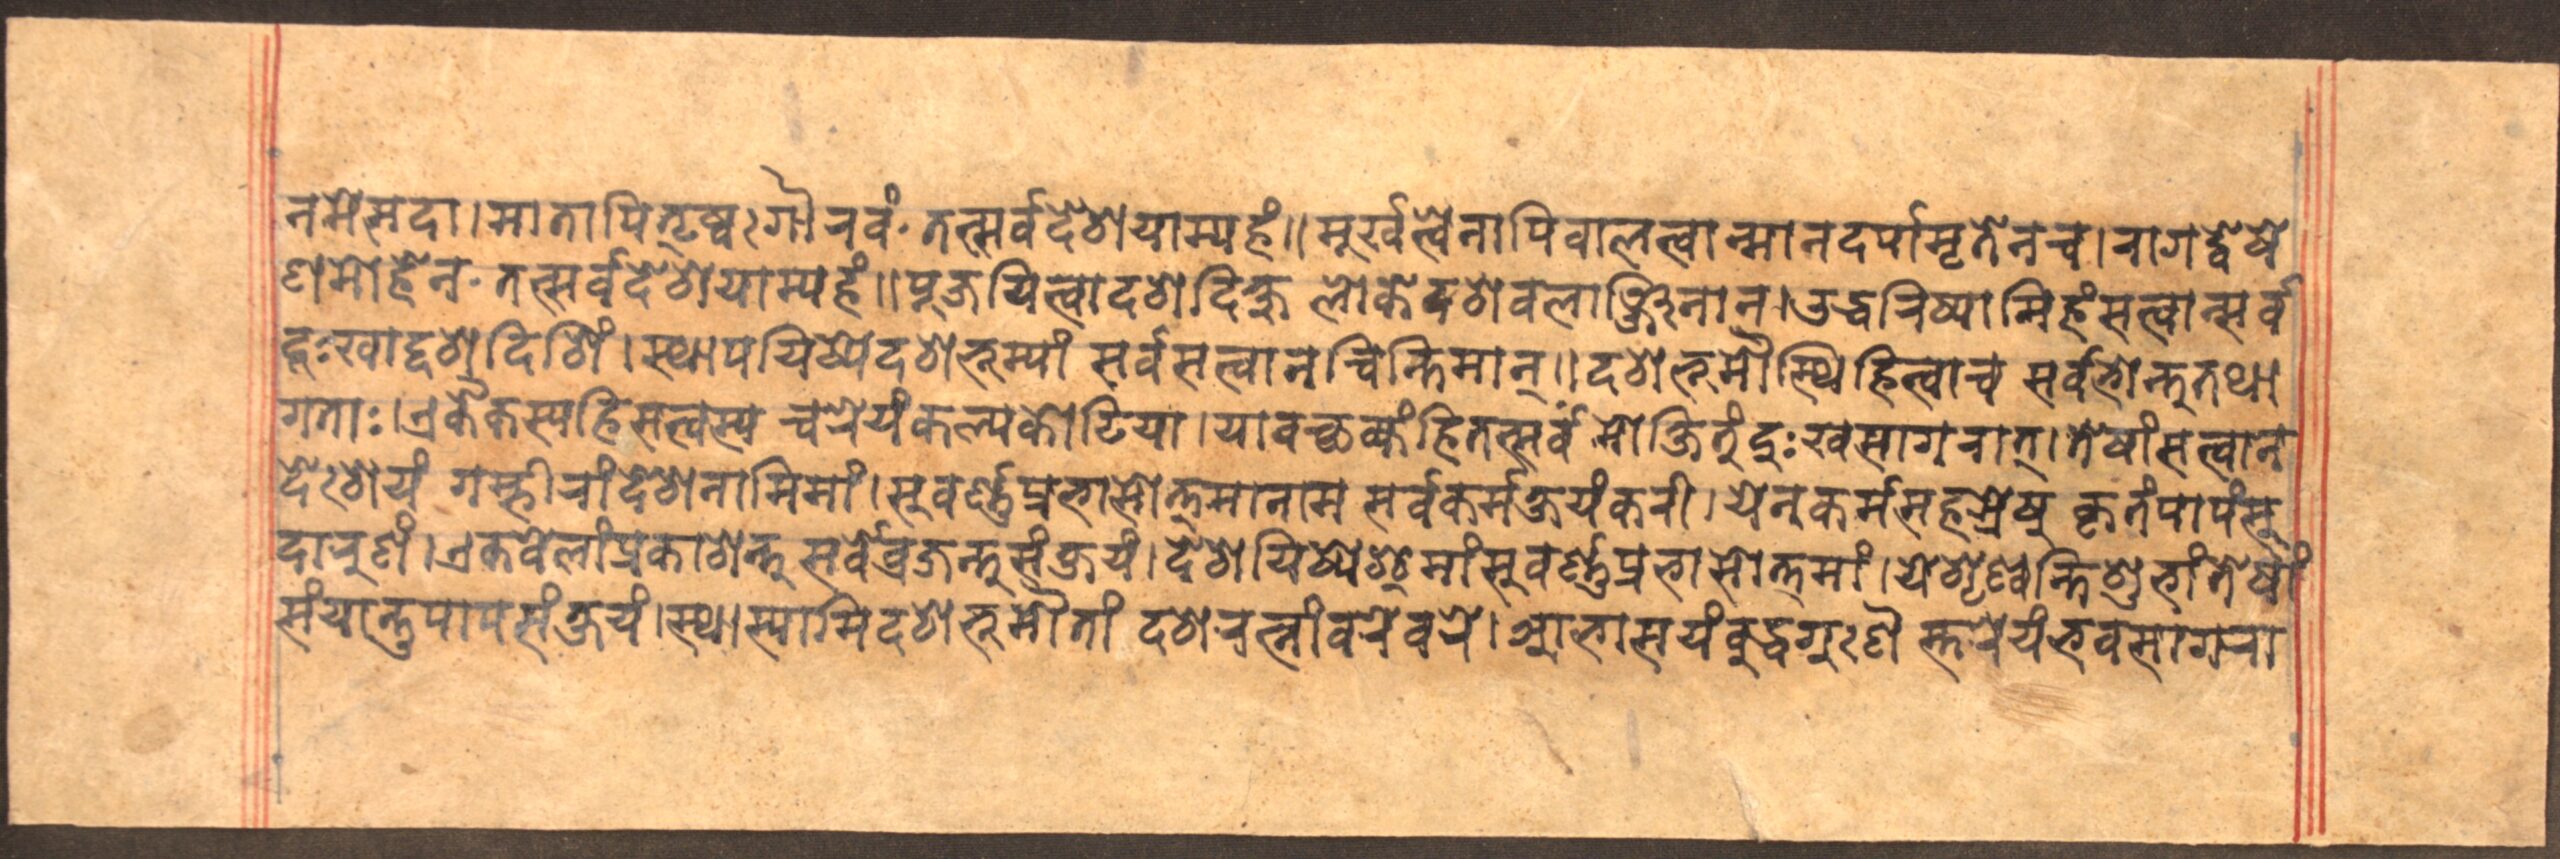 नमेसदा।मातापितृष्वःगौरवं॰तत्सर्वदेशयाम्यहं॥मूर्खत्वेनापिवालत्वान्मानदर्पामृतेनच।रागद्वेषे
णमोहेन॰तत्सर्वदेशयाम्यहं॥पूजयित्वादशदिक्षु लोकेदशवलाञ्जिनान्।उद्धरिष्यामिहंसत्वान्सर्व
दुःखाद्दशदिशिं।स्थापयिष्येदशभूम्यां सर्वसत्वानचिन्तिमान्॥दशभूमौस्थिहित्वाच सर्वभोन्तुतथा
गताः।एकैकस्यहिसत्वस्य चरेयंकल्पकोटिया।यावच्छक्यंहितत्सर्वं मोक्षितुंदुःखसागरात्।तेषांसत्वान
देःशेयं गम्भीरांदेशनामिमां।सुवर्णप्रभासोत्तमानाम सर्वकर्मक्षयंकरी।येनकर्मसहस्रेषु कृतंपापंसु
दारुणं।एकवेलांप्रकाशन्तु सर्वेव्रजन्तुसंक्षयं।देशयिष्येश्मांसुवर्णप्रभासोत्तमां।येशृण्वन्तिशुभांतेषां
संयान्तुपापसंक्षयं।स्थास्यामिदशभूमौतां दशरत्नांवरेवरे।आभासयंबुद्धगुःणै स्तरेयंभवसागरा